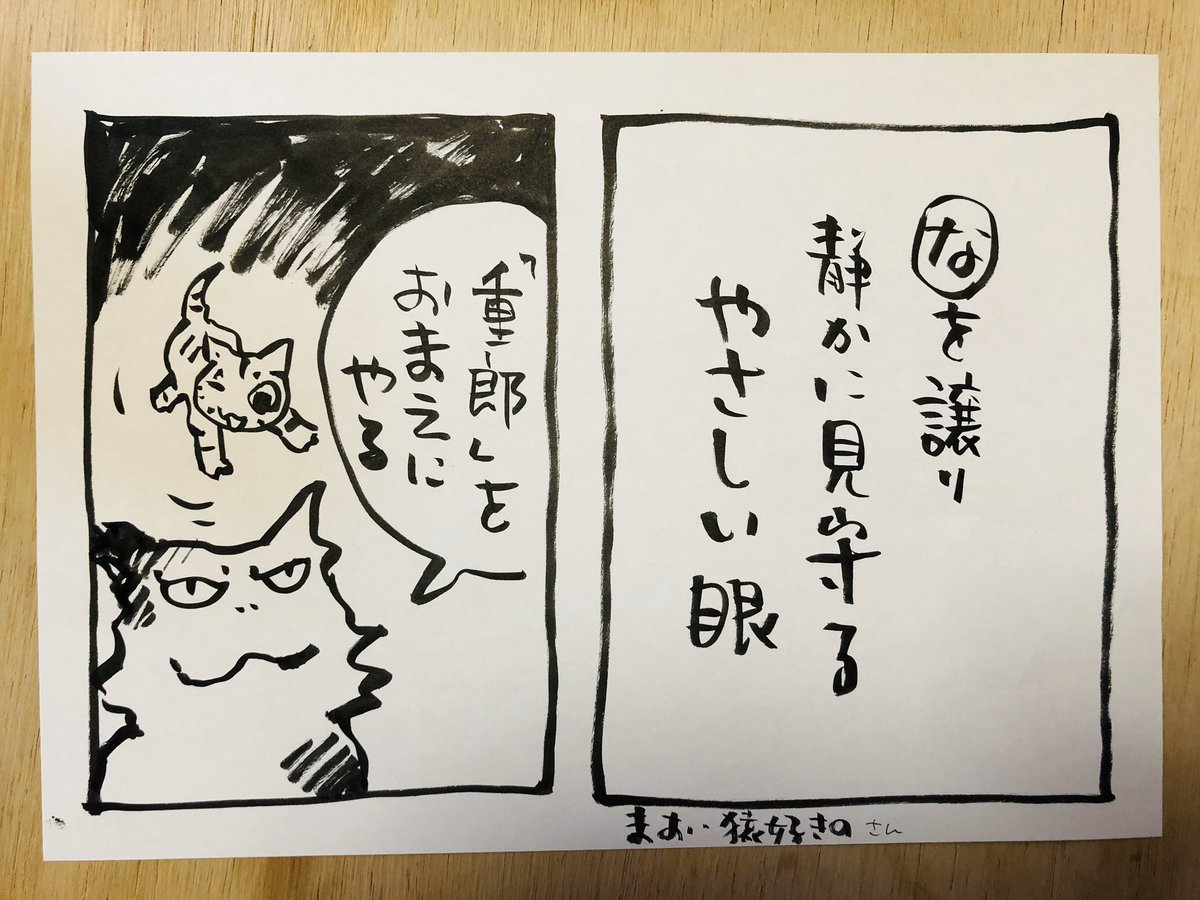 なを譲り
静かに見守る
やさしい眼
「重郎」を
おまえに
やる
まあい猿好きの さん